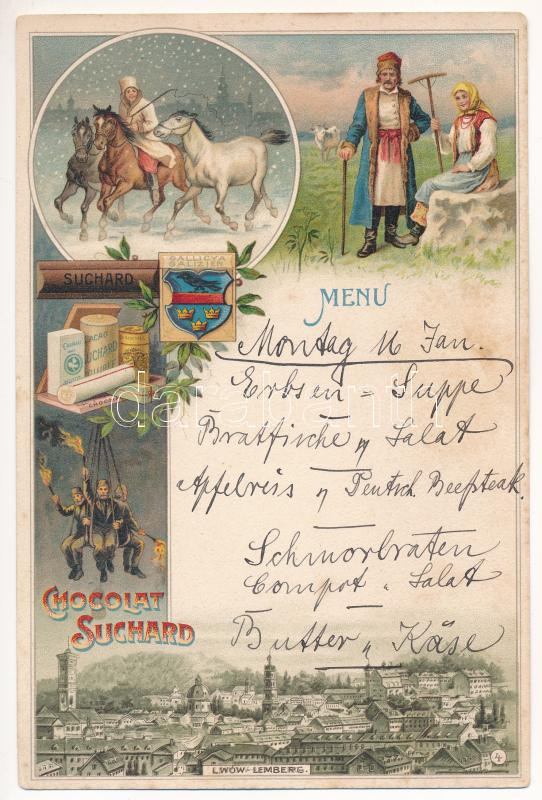 GALLICYA
GALIZIEN
SUCHARD
CACAO
SUCHARD
SOLUBLE
MENU
Montag 16 Jan.
Erbsen = Suppe
Bratfische u Salat
Apfelreis u Deutsch. Beefsteak.
Schmorbraten
Compot u Salat
Butter u Käse
CHOCOLAT
SUCHARD
LWÓW-LEMBERG.
4
darabanth